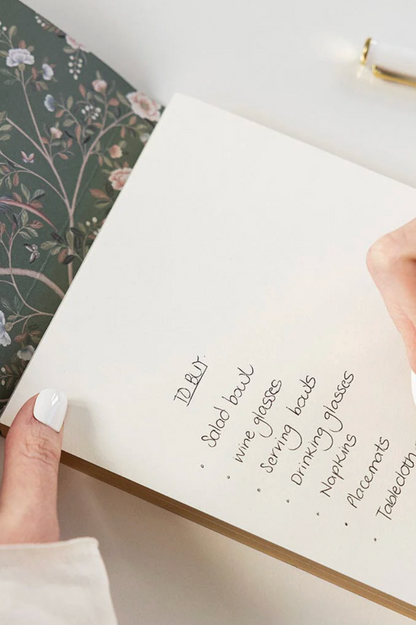 TO BUY.
• Salad bowl
• wine glasses
• Serving bowls
• Drinking glasses
• Napkins
• Placemats
• Tablecloth